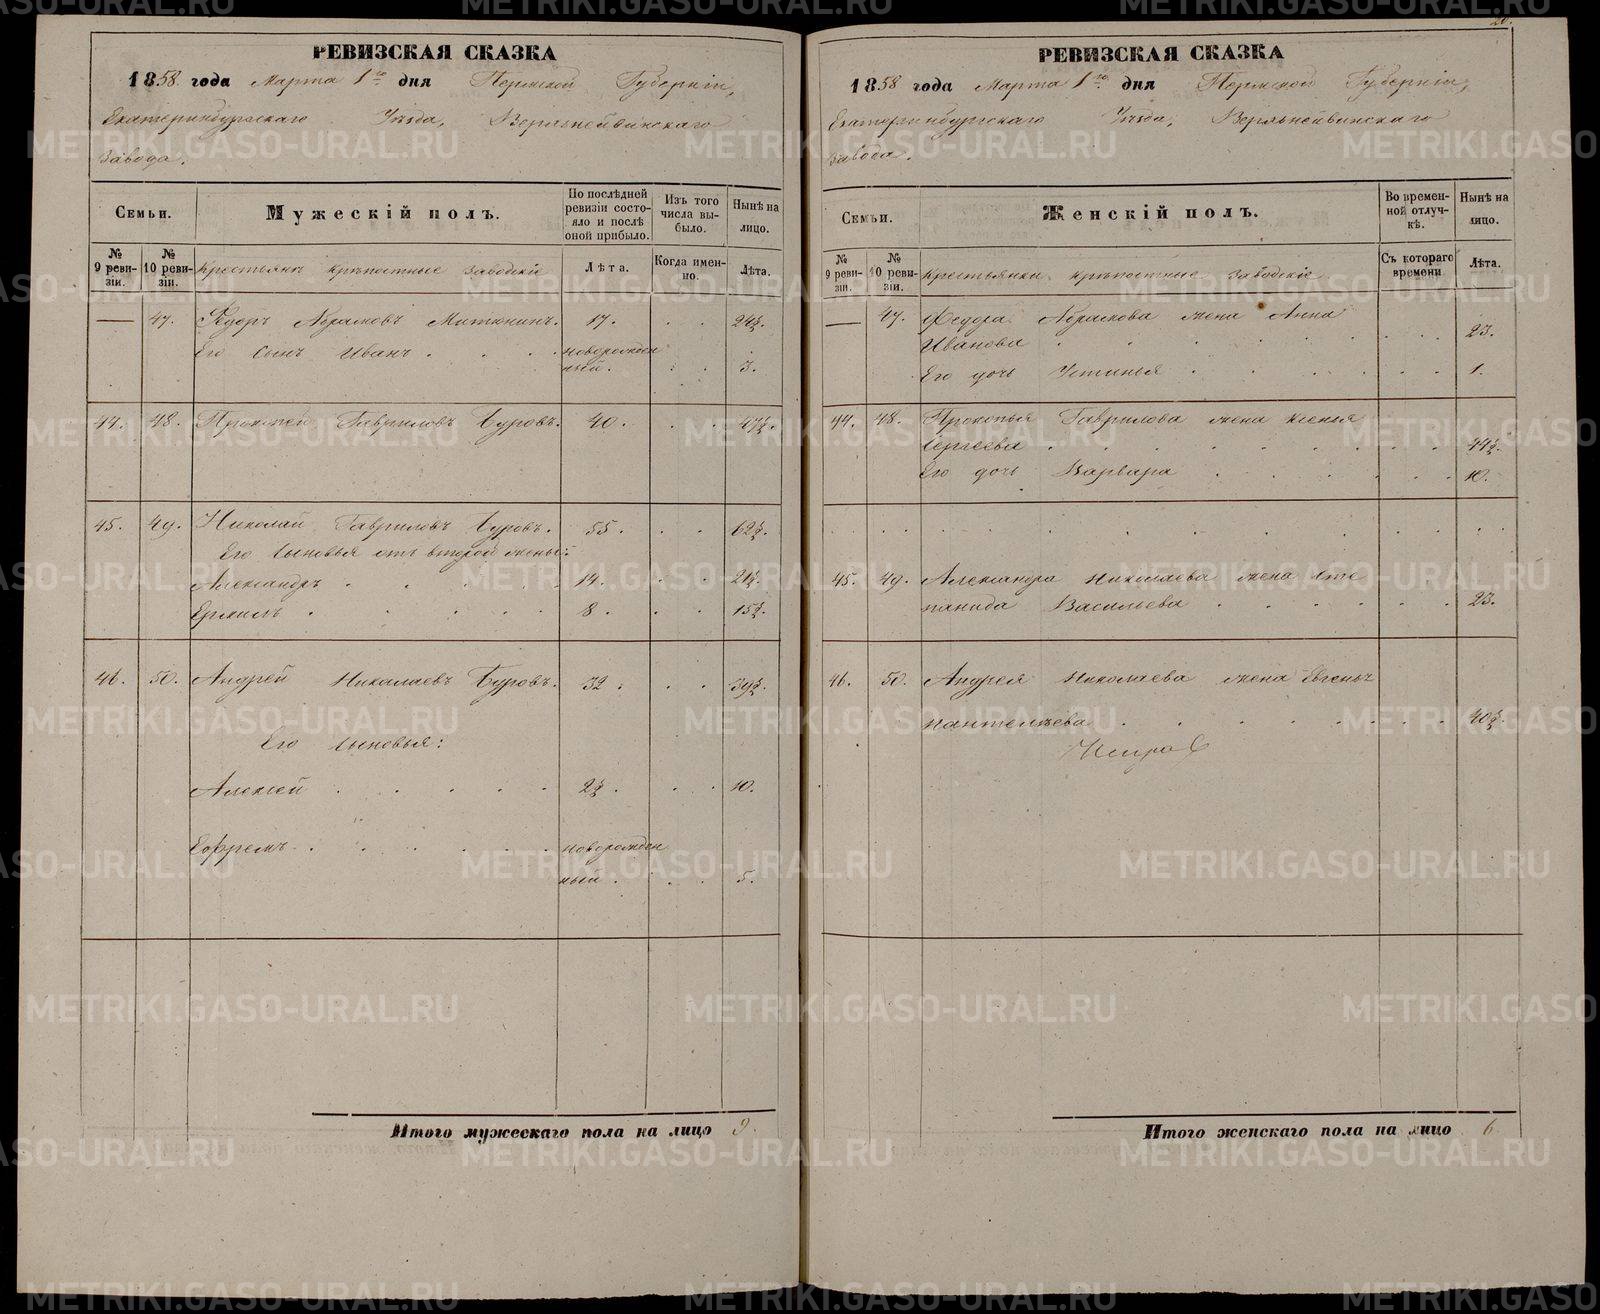 РЕВИЗСКАЯ СКАЗКА
1858 года Марта 1го дня Пермской Губерніи,
Екатеринбургскаго Уѣзда, Верхънейвинскаго
завода.
Семьи.
Мужескій полъ.
По послѣдней ревизіи состояло и послѣ оной прибыло.
Изъ того числа выбыло.
Нынѣ на лицо.
№ 9 ревизіи.
№ 10 ревизіи.
Крестьянъ крѣпостные заводскіе
Лѣта.
Когда именно.
Лѣта.
— 47. Федоръ Абрамовъ Митюнинъ. 17. 24½.
Его сынъ Иванъ новорожденный. 3.
44. 48. Прокопей Гавриловъ Буровъ. 40. 47½.
45. 49. Николай Гавриловъ Буровъ. 55. 62½.
Его сыновья отъ второй жены:
Александръ 14. 21½.
Ермилъ 8. 15½.
46. 50. Андрей Николаевъ Буровъ. 32. 39½.
Его сыновья:
Алексей 2½. 10.
Ефремъ новорожден
ный. 5.
Итого мужескаго пола на лицо 9.
20.
РЕВИЗСКАЯ СКАЗКА
1858 года Марта 1го дня Пермской Губерніи,
Екатеринбургскаго Уѣзда, Верхънейвинскаго
завода.
Семьи.
Женскій полъ.
Во временной отлучкѣ.
Нынѣ на лицо.
№ 9 ревизіи.
№ 10 ревизіи.
Крестьянки крѣпостные заводскіе
Съ котораго времени
Лѣта.
— 47. Федора Абрамова жена Анна
Иванова 23.
Его дочь Устинья 1.
44. 48. Прокопья Гаврилова жена Ксенья
Сергеева 44½.
Его дочь Варвара 10.
45. 49. Александра Николаева жена Сте
панида Васильева 23.
46. 50. Андрея Николаева жена Евгенья
Пантелѣева 40½.
Итого женскаго пола на лицо 6.
METRIKI.GASO-URAL.RU